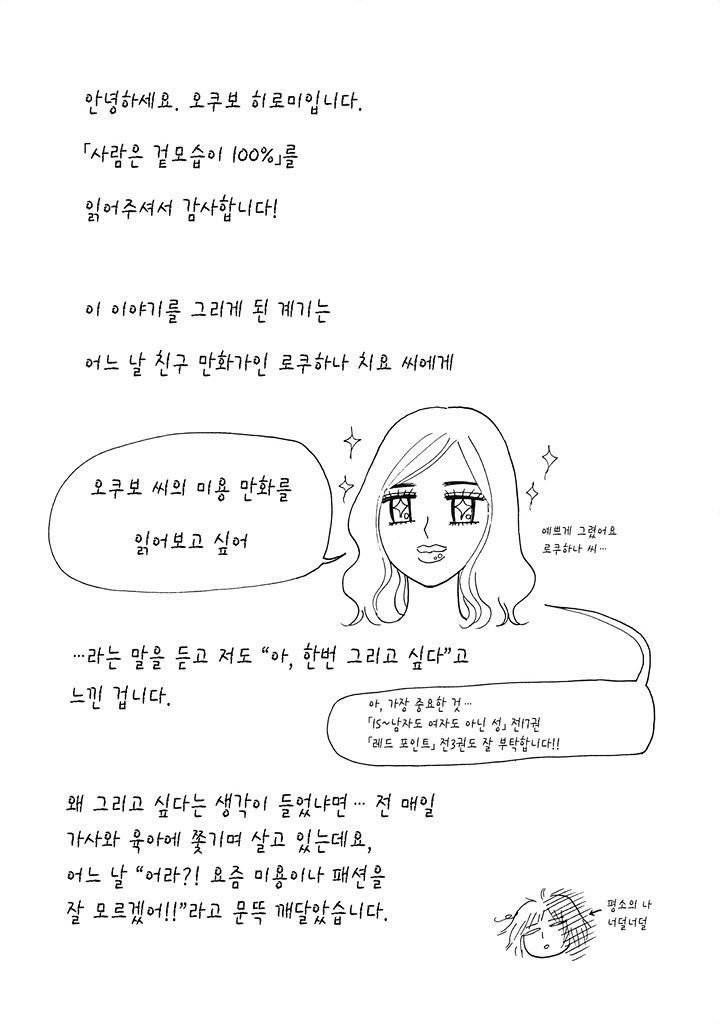 안녕하세요. 오쿠보 히로미입니다.
「사람은 겉모습이 100%」를
읽어주셔서 감사합니다!
이 이야기를 그리게 된 계기는
어느 날 친구 만화가인 로쿠하나 치요 씨에게
오쿠보 씨의 미용 만화를
읽어보고 싶어
예쁘게 그렸어요
로쿠하나 씨…
…라는 말을 듣고 저도 “아, 한번 그리고 싶다”고
느낀 겁니다.
아, 가장 중요한 것…
「IS~남자도 여자도 아닌 성」 전17권
「레드 포인트」 전3권도 잘 부탁합니다!!
왜 그리고 싶다는 생각이 들었냐면… 전 매일
가사와 육아에 쫓기며 살고 있는데요,
어느 날 “어라?! 요즘 미용이나 패션을
잘 모르겠어!!”라고 문득 깨달았습니다.
평소의 나
너덜너덜